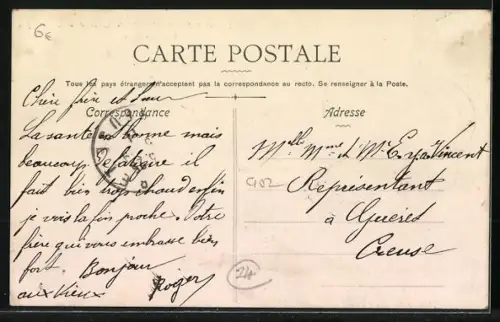 6€
CARTE POSTALE
Tous les pays étrangers n'acceptent pas la correspondance au recto. Se renseigner à la Poste.
Correspondance
Adresse
Chère frère et Sœur
La santé est bonne mais
beaucoup de fatigue il
fait bien trop chaud enfin
je vois la fin proche. Votre
frère qui vous embrasse bien
fort. Bonjour
aux vieux Roger
Mr Vincent
Représentant
à Guéret
Creuse
24